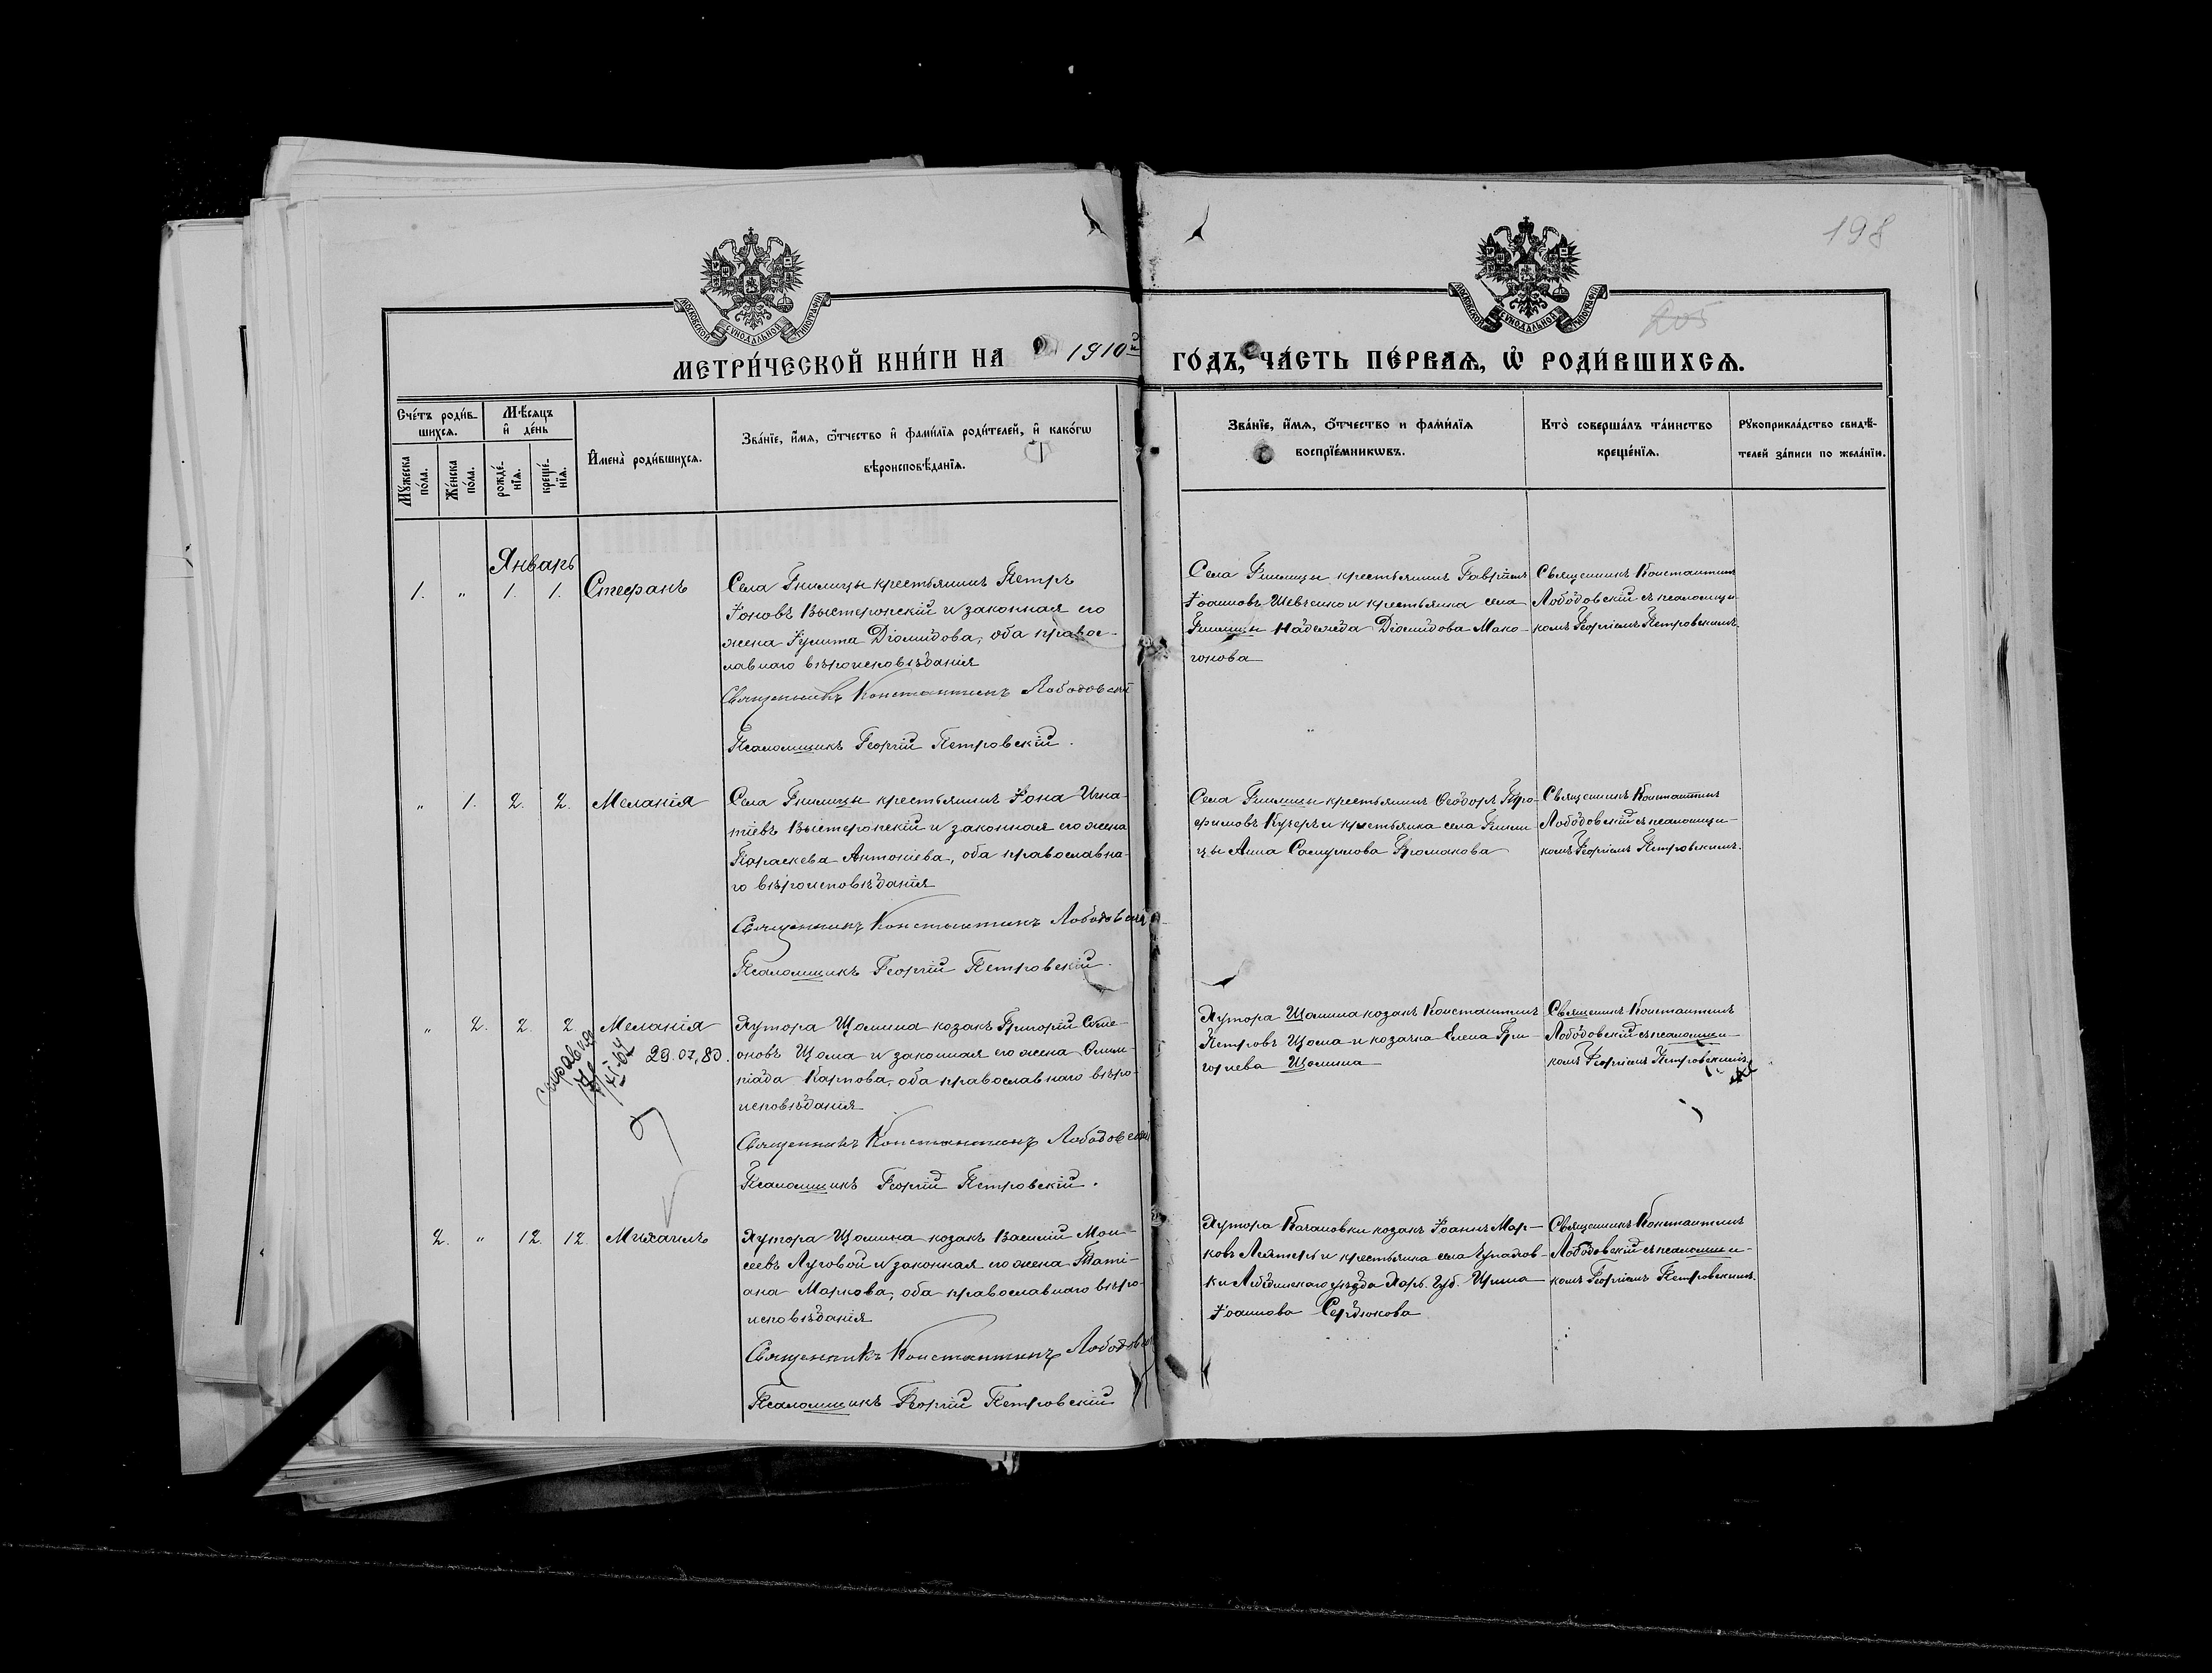 198
205
МОСКОВСКОЙ СѴНОДАЛЬНОЙ ТИПОГРАФІИ
МОСКОВСКОЙ СѴНОДАЛЬНОЙ ТИПОГРАФІИ
МЕТРИ́ЧЕСКОЙ КНИ́ГИ НА 1910й ГО́ДЪ, ЧА́СТЬ ПЕ́РВАѦ, Ѽ РОДИ́ВШИХСѦ.
Сче́тъ роди́в-
шихсѧ.
Мꙋ́жеска по́ла.
Же́нска по́ла.
Мѣ́сѧцъ
и҆ де́нь
рожде́-
нїѧ.
креще́-
нїѧ.
И҆мена̀ роди́вшихсѧ.
Зва́нїе, и҆́мѧ, ѻ҆́тчество и҆ фами́лїѧ роди́телей, и҆ како́гѡ
вѣроисповѣ́данїѧ.
Зва́нїе, и҆́мѧ, ѻ҆́тчество и фами́лїѧ
воспрїе́мникѡвъ.
Кто̀ соверша́лъ та́инство
креще́нїѧ.
Рꙋкоприкла́дство свидѣ́-
телей за́писи по жела́нїю.
Январь
1. " 1. 1. Стефанъ
Села Гнилицы крестьянинъ Петръ
Іоновъ Выстеропскій и законная его
жена Іулита Діомидова, оба правос-
лавнаго вѣроисповѣданія
Священникъ Константинъ Лободовскій
Псаломщикъ Георгій Петровскій.
Села Гнилицы крестьянинъ Гавріилъ
Іоанновъ Шевченко и крестьянка села
Гнилицы Надежда Діомидова Мако-
гонова
Священникъ Константинъ
Лободовскій съ псаломщи-
комъ Георгіемъ Петровскимъ.
" 1. 2. 2. Меланія
Села Гнилицы крестьянинъ Іона Игна-
тіевъ Выстеропскій и законная его жена
Параскева Антоніева, оба православна-
го вѣроисповѣданія
Священникъ Константинъ Лободовскій
Псаломщикъ Георгій Петровскій.
Села Гнилицы крестьянинъ Ѳеодоръ Тро-
фимовъ Кучеръ и крестьянка села Гнили-
цы Анна Самуилова Громакова
Священникъ Константинъ
Лободовскій съ псаломщи-
комъ Георгіемъ Петровскимъ.
" 2. 2. 2. Меланія
29.07,80.
Хутора Щомина козакъ Григорій Симе-
оновъ Щома и законная его жена Олим-
піада Карпова, оба православнаго вѣро-
исповѣданія
Священникъ Константинъ Лободовскій
Псаломщикъ Георгій Петровскій.
Хутора Щомина козакъ Константинъ
Петровъ Щома и козачка Елена Гри-
горіева Щомина
Священникъ Константинъ
Лободовскій съ псаломщи-
комъ Георгіемъ Петровскимъ
2. " 12. 12. Михаилъ
Хутора Щомина козакъ Василій Мои-
сеевъ Луговой и законная его жена Тати-
ана Маркова, оба православнаго вѣро-
исповѣданія
Священникъ Константинъ Лободовскій
Псаломщикъ Георгій Петровскій
Хутора Качановки козакъ Іоаннъ Мар-
ковъ и крестьянка села
ки Лебединскаго уѣзда Харь. Губ. Ирина
Іоаннова Сердюкова
Священникъ Константинъ
Лободовскій съ псаломщи-
комъ Георгіемъ Петровскимъ.